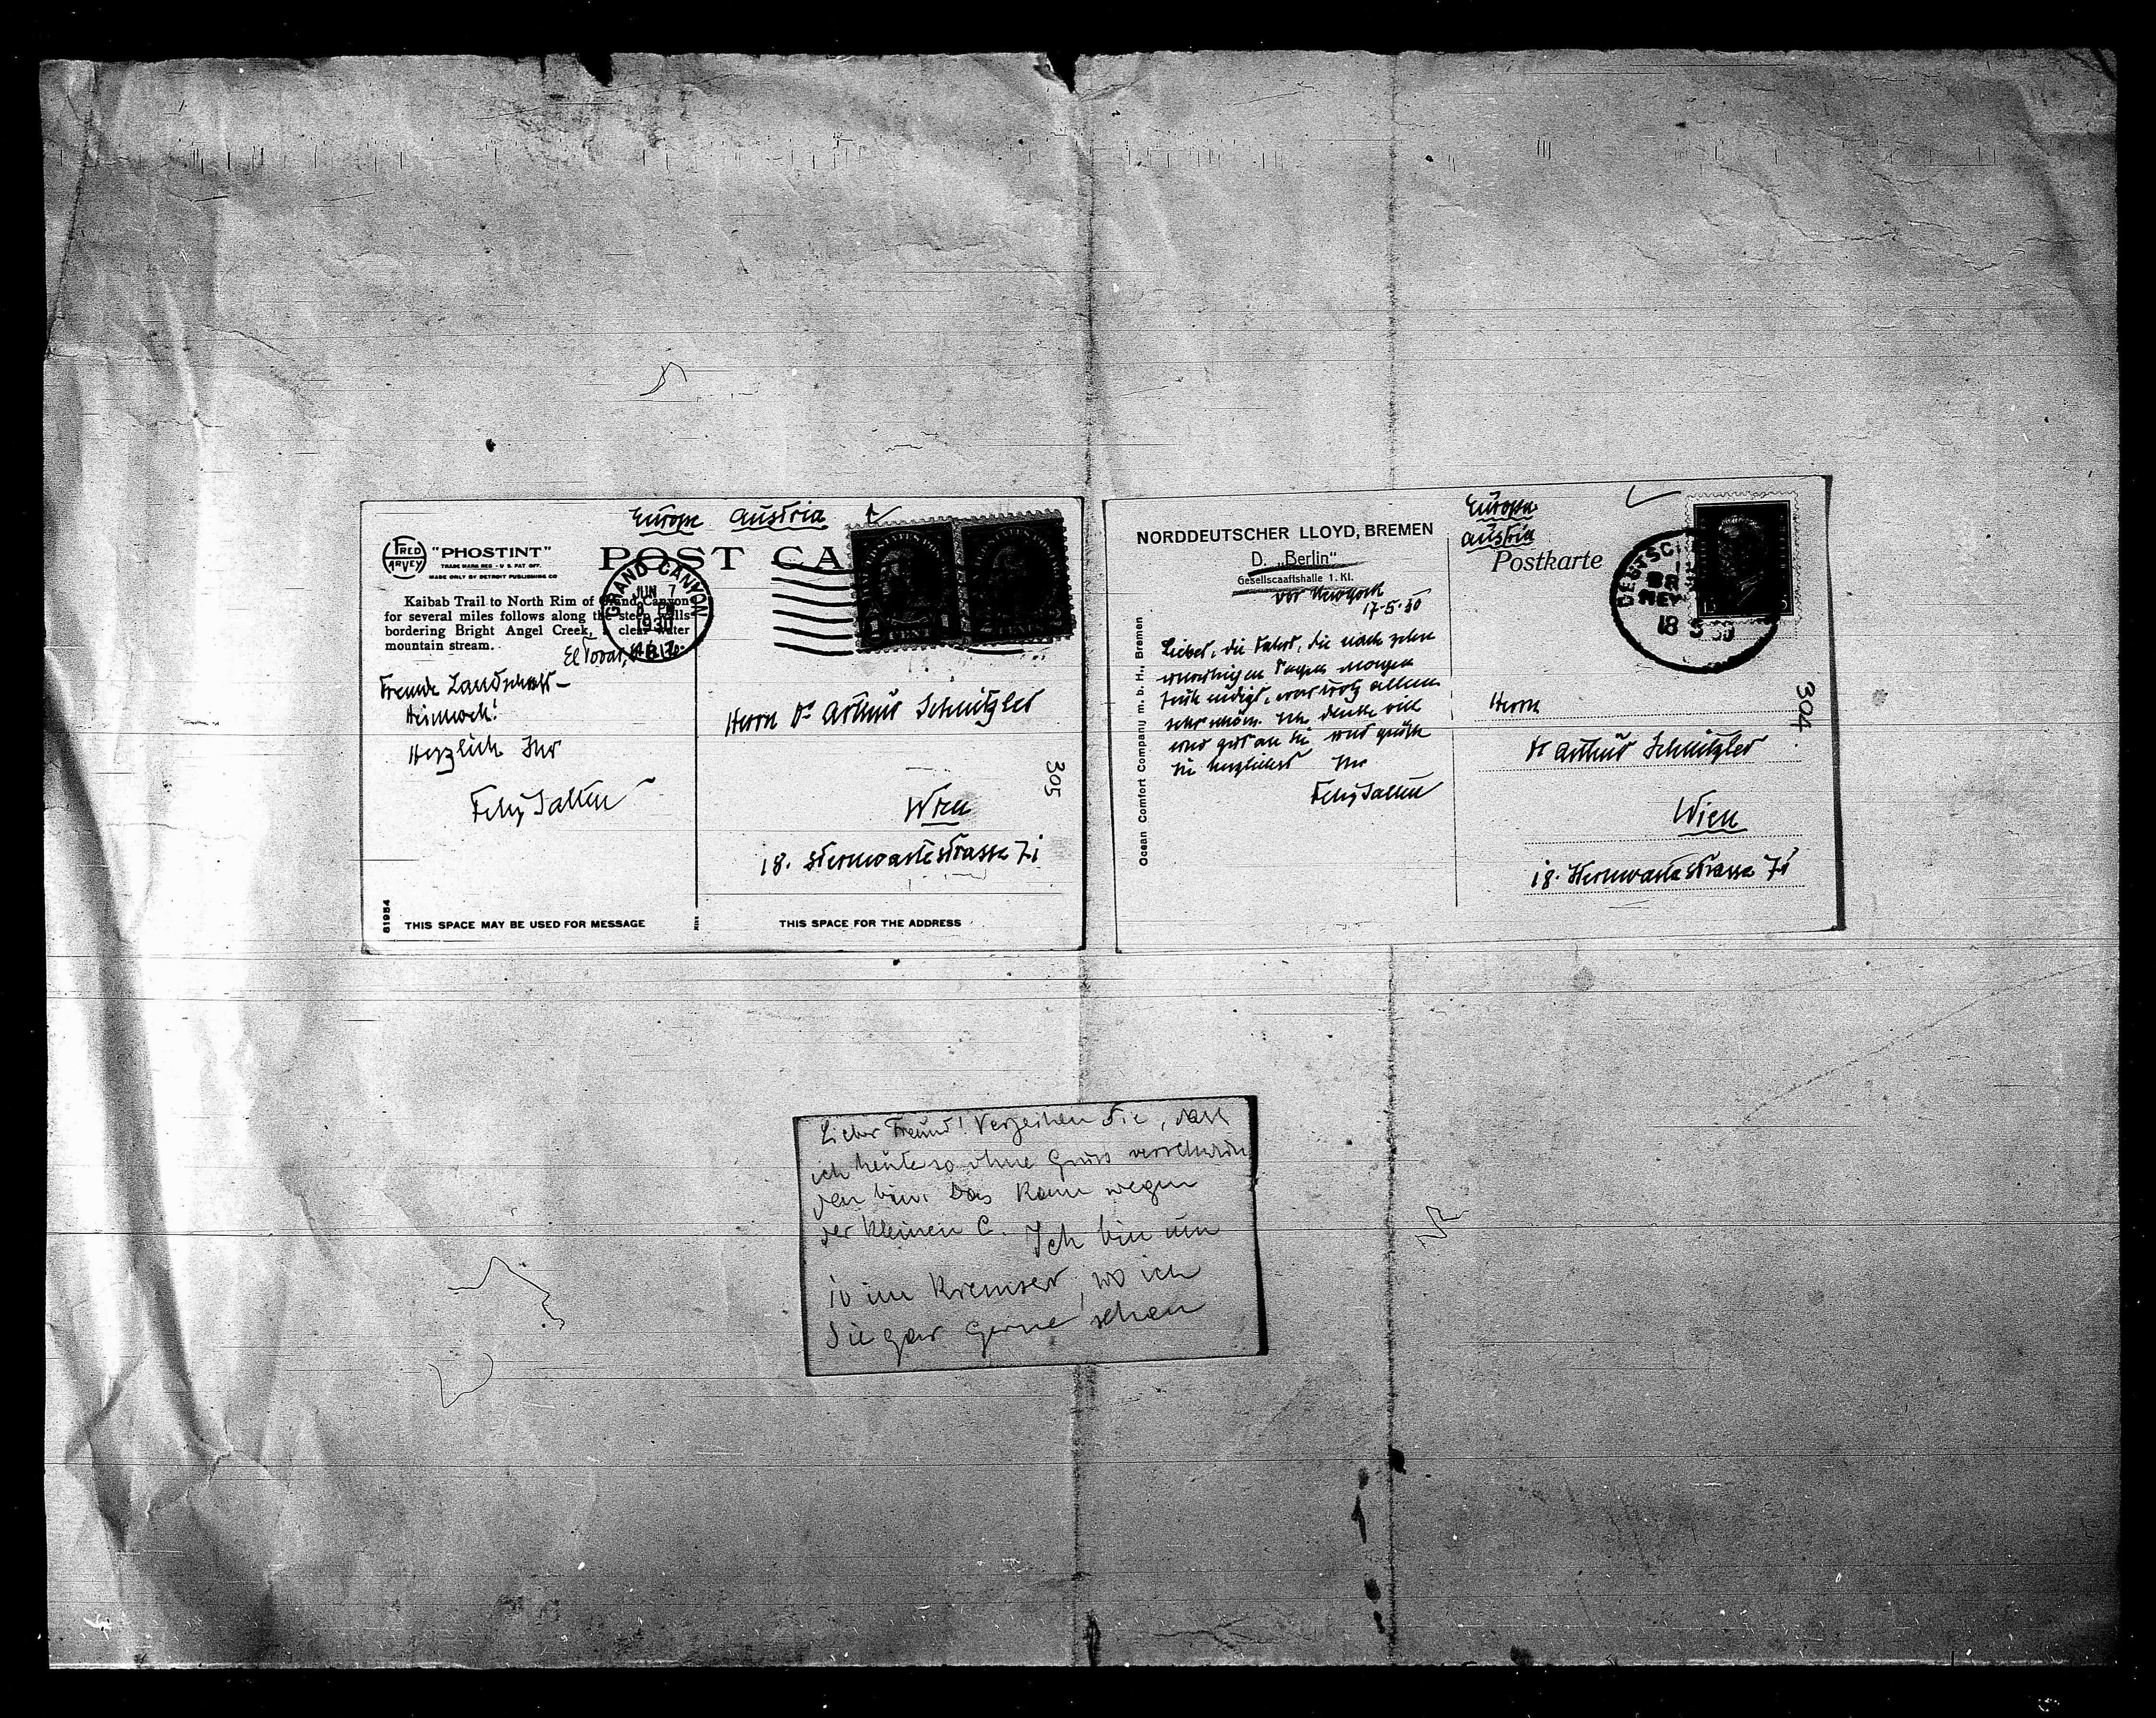 Europe Austria
FRED HARVEY
"PHOSTINT"
TRADE MARK REG - U.S. PAT. OFF.
MADE ONLY BY DETROIT PUBLISHING CO
POST CA
GRAND CANYON
JUN 7
8 PM
1930
ARIZ.
Kaibab Trail to North Rim of Grand Canyon
for several miles follows along the steep walls
bordering Bright Angel Creek, a clear water
mountain stream.
El Tovar,
Fremde Landschaft –
Heimweh!
Herzlich Ihr
Felix Salten
Herrn Dr Arthur Schnitzler
Wien
18. Sternwartestrasse 71
305
81954
THIS SPACE MAY BE USED FOR MESSAGE
THIS SPACE FOR THE ADDRESS
NORDDEUTSCHER LLOYD, BREMEN
D. „Berlin"
Gesellscaaftshalle 1. Kl.
vor Newyork
17-5-30
Lieber, die Fahrt, die nach zehn
unruhigen Tagen morgen
früh endigt, war trotz allem
sehr schön. Ich denke viel
und gut an Sie und grüße
Sie herzlichst Ihr
Felix Salten
Ocean Comfort Company m. b. H., Bremen
Europa
Austria
Postkarte
DEUTSCH
18 5 30
304
Herrn
Dr Arthur Schnitzler
Wien
18. Sternwartestrasse 71
Lieber Freund! Verzeihen Sie, dass
ich heute so ohne Gruss verschwun
den bin. Das kam wegen
der kleinen C. Ich bin um
10 im Kremser, wo ich
Sie gar gerne sehen